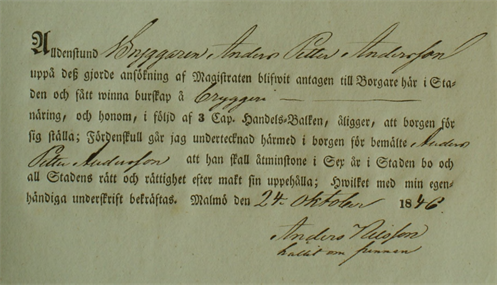 Alldenstund Bryggaren Anders Petter Andersson
uppå deß gjorde ansökning af Magistraten blifwit antagen till Borgare här i Sta-
den och fått winna burskap å Bryggeri
näring, och honom, i följd af 3 Cap. Handels-Balken, åligger, att borgen för
sig ställa; Fördenskull går jag undertecknad härmed i borgen för bemälte Anders
Petter Andersson att han skall åtminstone i Sex år i Staden bo och
all Stadens rätt och rättighet efter makt sin uppehålla; Hwilket med min egen-
händiga underskrift bekräftas. Malmö den 24 Oktober 1846.
Anders Nilsson